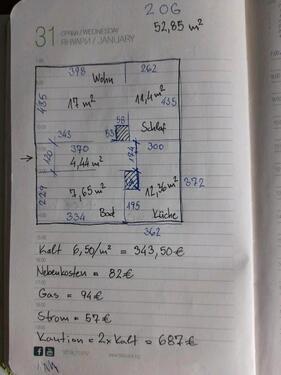 2 OG
52,85 m²
31
СРЯДА / WEDNESDAY
ЯНУАРИ / JANUARY
398 Wohn 262
435 17 m² 18,4 m² 435
58
343 53 Schlaf
120 370 184 300
4,44 m²
229 7,65 m² 12,36 m² 372
195
334 Bad Küche
362
Kalt 6,50/m² = 343,50€
Nebenkosten = 82€
Gas = 94€
Strom = 57€
Kaution = 2x Kalt = 687€